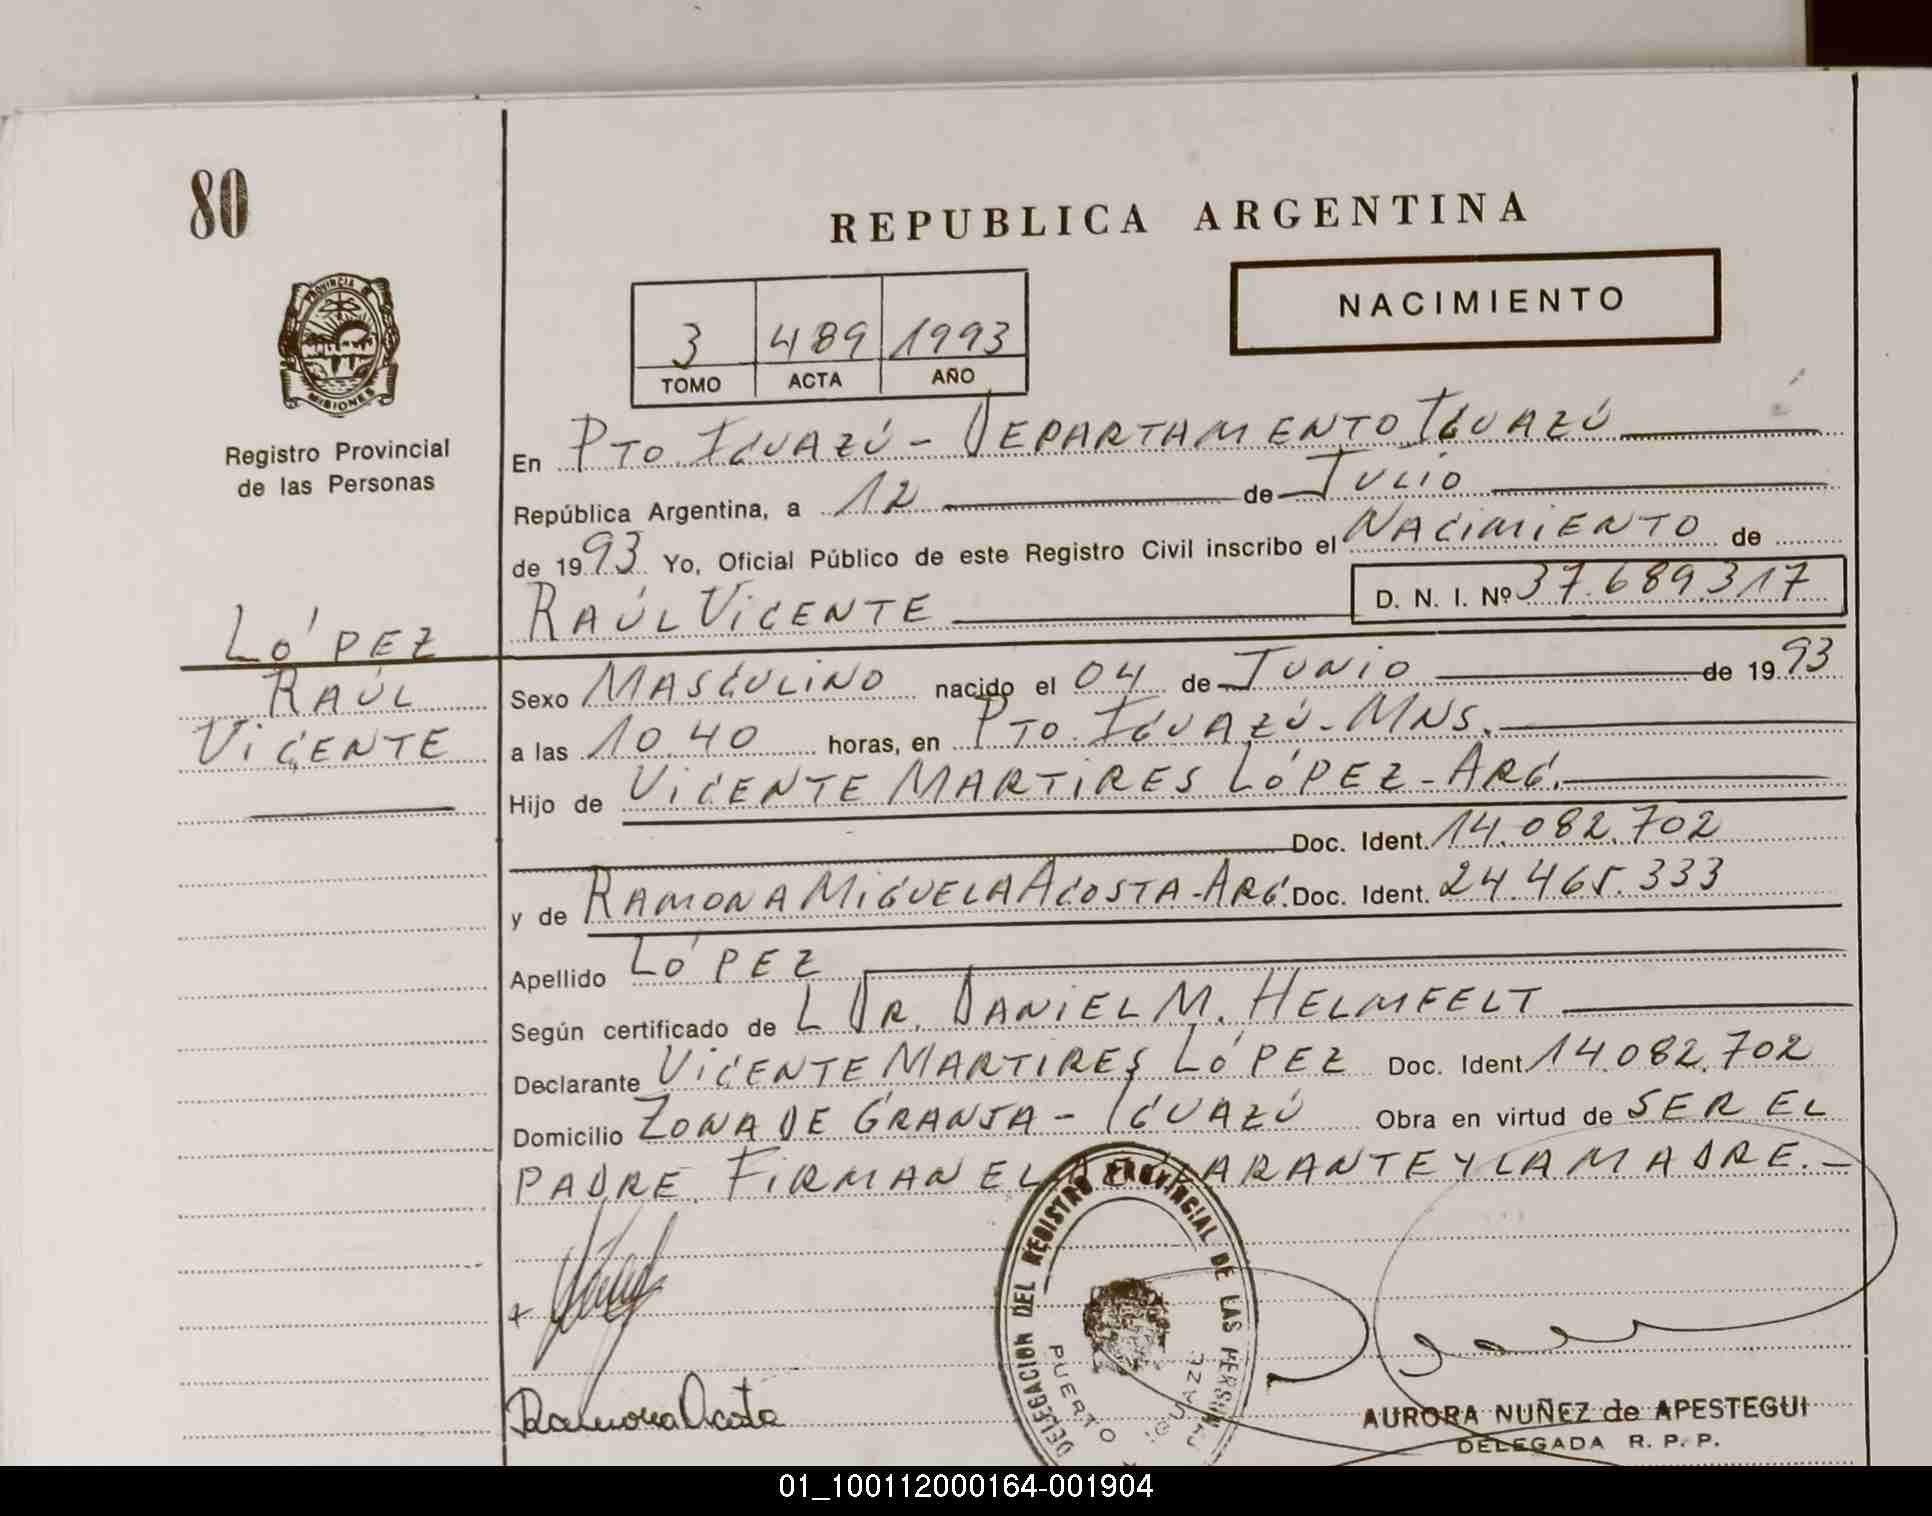 80
REPUBLICA ARGENTINA
PROVINCIA DE
MISIONES
Registro Provincial
de las Personas
3 489 1993
TOMO ACTA AÑO
NACIMIENTO
En PTO. IGUAZÚ - DEPARTAMENTO IGUAZÚ
República Argentina, a 12 de JULIO
de 1993 Yo, Oficial Público de este Registro Civil inscribo el NACIMIENTO de
RAÚL VICENTE D. N. I. Nº 37.689.317
LÓPEZ
RAÚL
VICENTE
Sexo MASCULINO nacido el 04 de JUNIO de 1993
a las 10.40 horas, en PTO. IGUAZÚ - MNS.
Hijo de VICENTE MARTIRES LÓPEZ - ARG.
Doc. Ident. 14.082.702
y de RAMONA MIGUELA ACOSTA - ARG. Doc. Ident. 24.465.333
Apellido LÓPEZ
Según certificado de L DR. DANIEL M. HELMFELT
Declarante VICENTE MARTIRES LÓPEZ Doc. Ident. 14.082.702
Domicilio ZONA DE GRANJA - IGUAZÚ Obra en virtud de SER EL
PADRE. FIRMAN EL DECLARANTE Y LA MADRE. -
DELEGACION DEL REGISTRO PROVINCIAL DE LAS PERSONAS
PUERTO IGUAZU
Ramona Acosta
AURORA NUÑEZ de APESTEGUI
DELEGADA R. P. P.
01_100112000164-001904